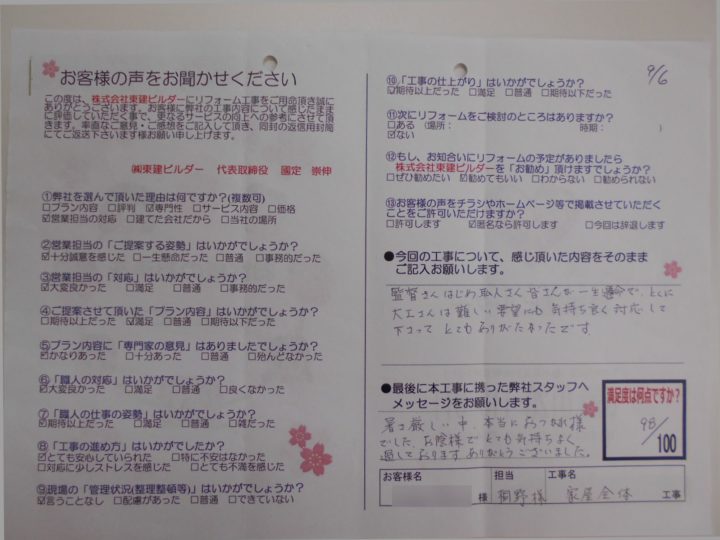 お客様の声をお聞かせください
この度は、株式会社東建ビルダーにリフォーム工事をご用命頂き誠に
ありがとうございます。お客様に弊社の工事内容について感じたまま
に評価していただく事で、更なるサービスの向上への参考にさせて頂
きます。率直なご意見・ご感想をご記入して頂き、同封の返信用封筒
にてご返送下さいます様お願い申し上げます。
㈱東建ビルダー 代表取締役 國定 崇伸
①弊社を選んで頂いた理由は何ですか?(複数可)
□プラン内容 □評判 ☑専門性 □サービス内容 □価格
☑営業担当の対応 □建てた会社だから □当社の場所
②営業担当の「ご提案する姿勢」はいかがでしょうか?
☑十分誠意を感じた □一生懸命だった □普通 □事務的だった
③営業担当の「対応」はいかがでしょうか?
☑大変良かった □満足 □普通 □事務的だった
④ご提案させて頂いた「プラン内容」はいかがでしょうか?
□期待以上だった ☑満足 □普通 □期待以下だった
⑤プラン内容に「専門家の意見」はありましたでしょうか?
☑かなりあった □十分あった □普通 □殆んどなかった
⑥「職人の対応」はいかがでしょうか?
☑大変良かった □満足 □普通 □良くなかった
⑦「職人の仕事の姿勢」はいかがでしょうか?
☑期待以上だった □満足 □普通 □雑だった
⑧「工事の進め方」はいかがでしたか?
☑とても安心していられた □特に不安はなかった
□対応に少しストレスを感じた □とても不満を感じた
⑨現場の「管理状況(整理整頓等)」はいかがでしょうか?
☑言うことなし □配慮があった □普通 □できていない
9/6
⑩「工事の仕上がり」はいかがでしょうか?
☑期待以上だった □満足 □普通 □期待以下だった
⑪次にリフォームをご検討のところはありますか?
□ある (場所: 時期: )
☑ない
⑫もし、お知合いにリフォームの予定がありましたら
株式会社東建ビルダーを「お勧め」頂けますでしょうか?
□ぜひ勧めたい ☑勧めてもいい □わからない □勧められない
⑬お客様の声をチラシやホームページ等で掲載させていただく
ことをご許可いただけますか?
□許可します ☑匿名なら許可します □今回は辞退します
●今回の工事について、感じ頂いた内容をそのまま
ご記入お願いします。
監督さんはじめ職人さん皆さんが一生懸命で、とくに
大工さんは難しい要望にも気持ち良く対応して
下さって とてもありがたかったです
●最後に本工事に携った弊社スタッフへ
メッセージをお願いします。
暑さ厳しい中、本当におつかれ様
でした。お陰様でとても気持ちよく
過しております ありがとうございました。
満足度は何点ですか?
98/100
お客様名 様
担当 桐野様
工事名 家屋全体 工事